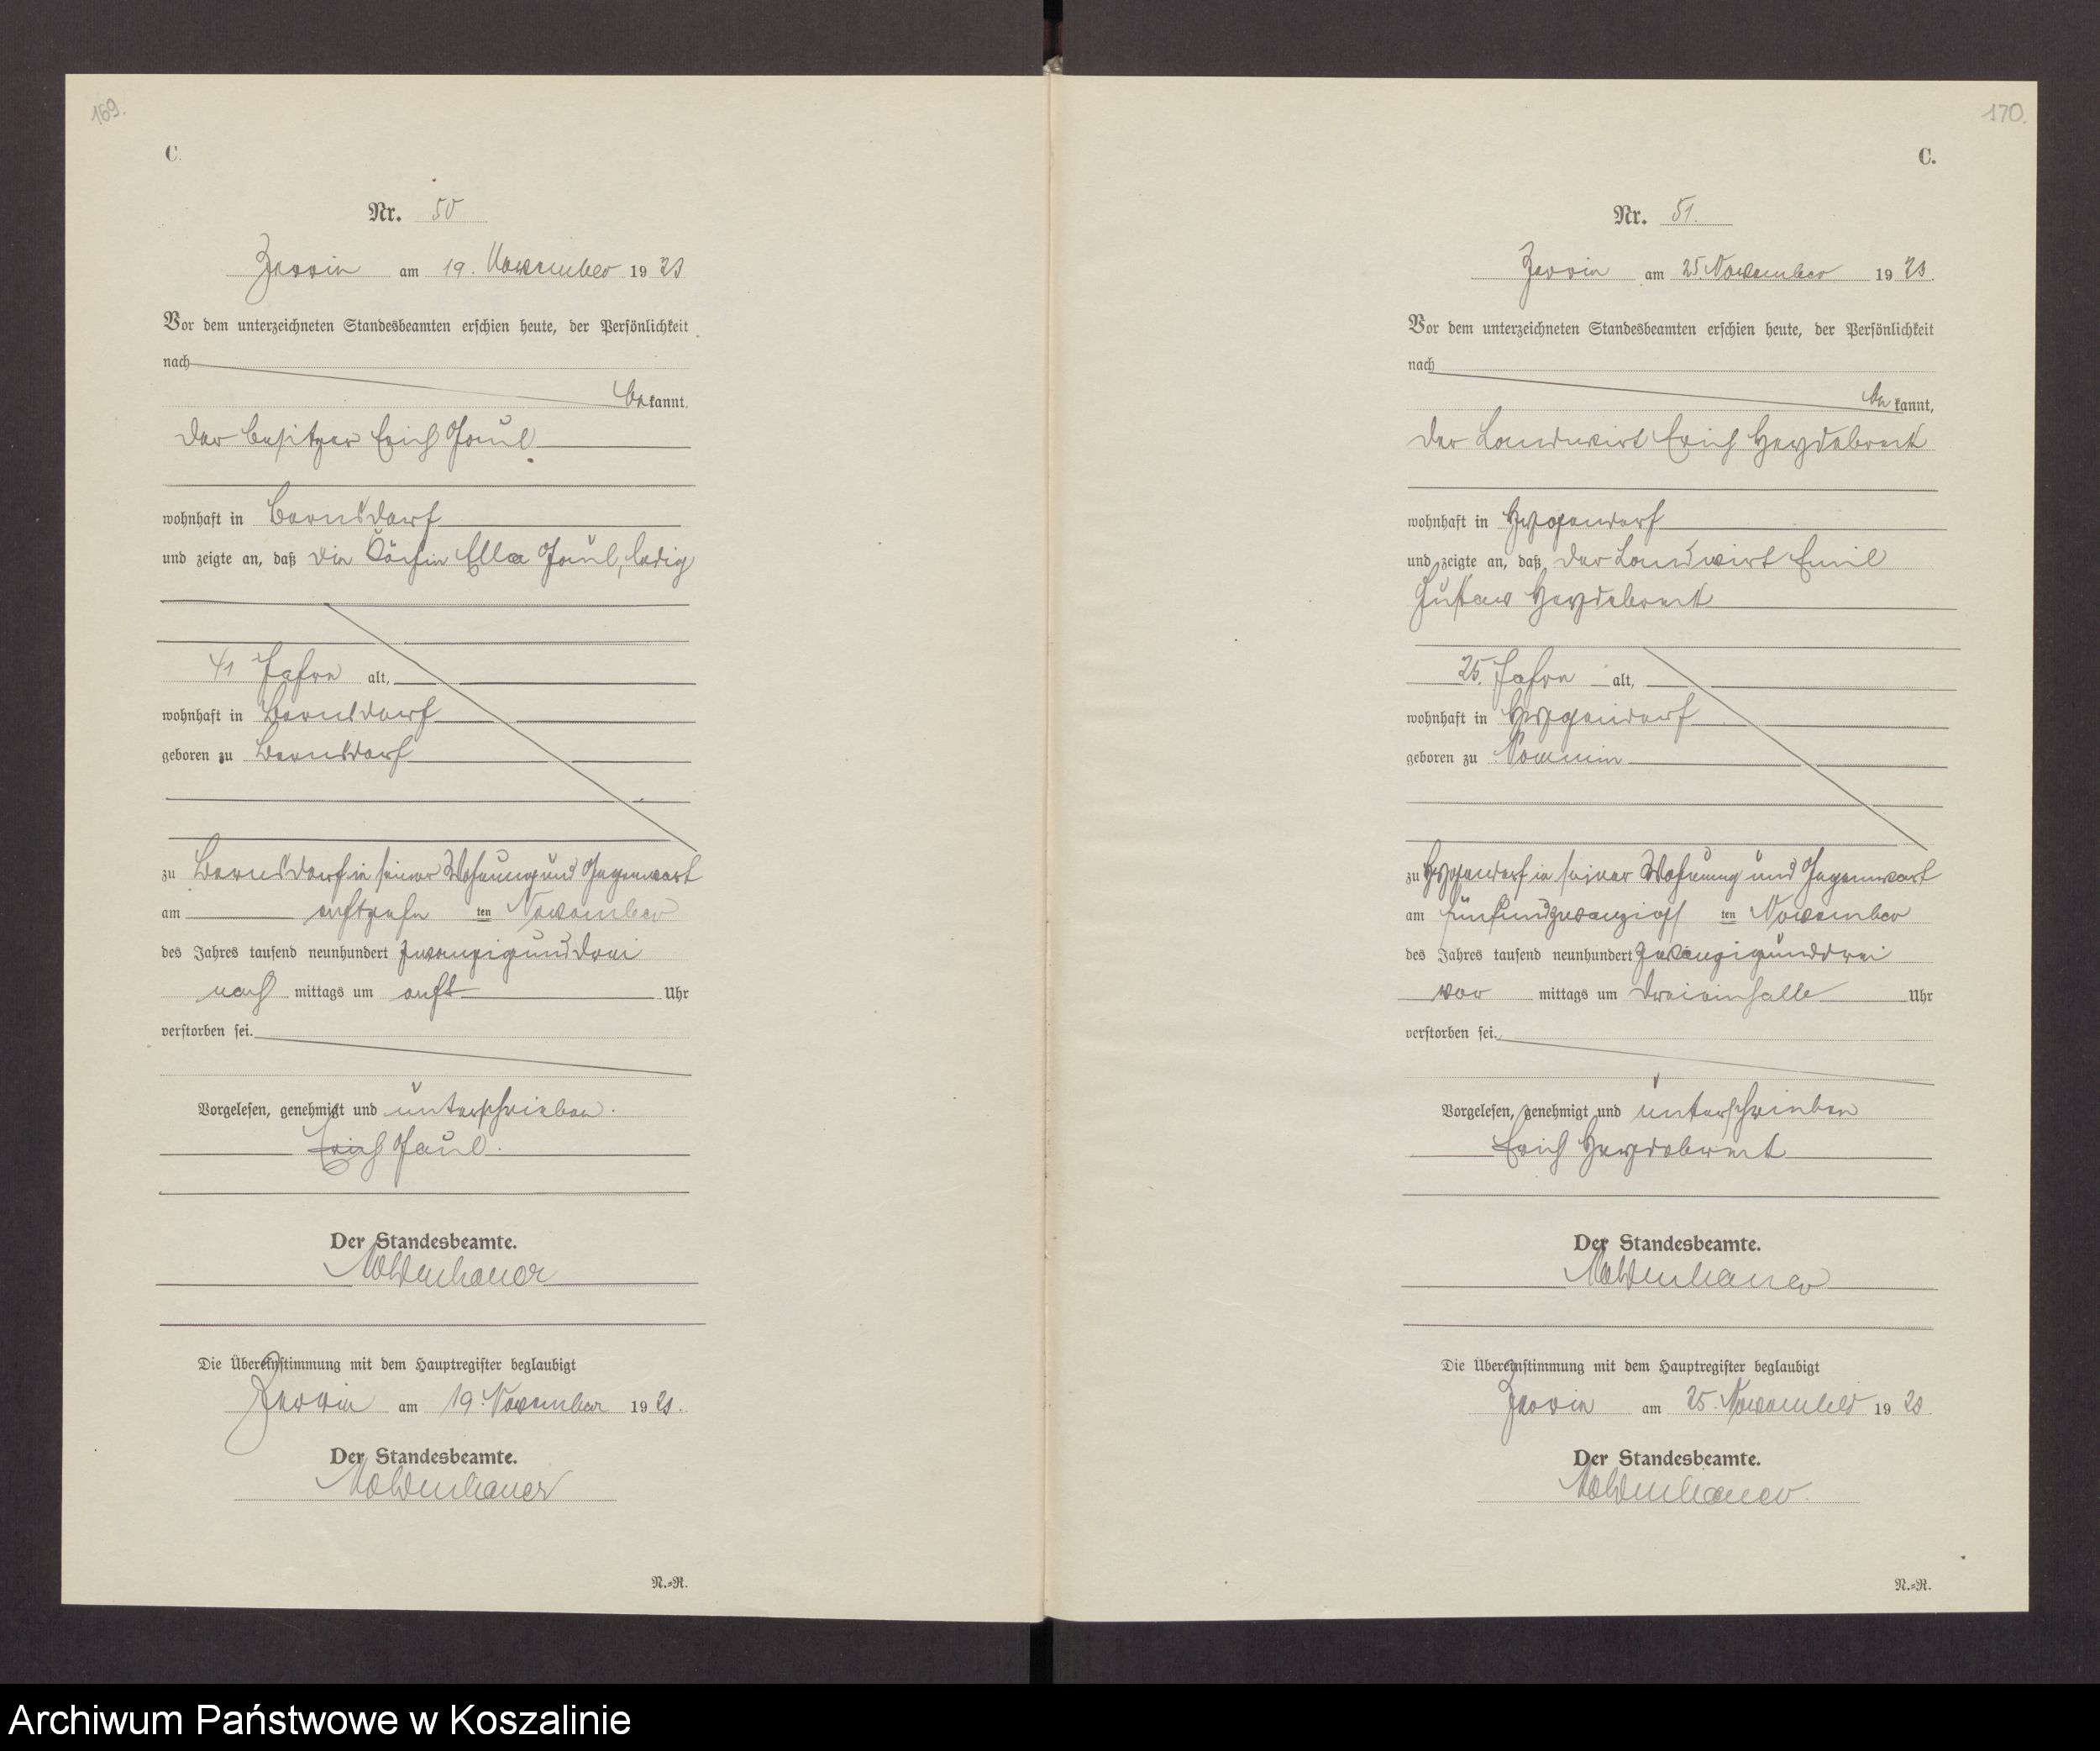 169.
C.
Nr. 50
Zarrin am 19. November 1923
Vor dem unterzeichneten Standesbeamten erschien heute, der Persönlichkeit
nach
bekannt,
der Besitzer Erich Paul
wohnhaft in Bernsdorf
und zeigte an, daß die Köchin Ella Paul, ledig
41 Jahre alt,
wohnhaft in Bernsdorf
geboren zu Bernsdorf
zu Bernsdorf in seiner Wohnung und Gegenwart
am achtzehn ten November
des Jahres tausend neunhundert zwanzigunddrei
nach mittags um acht Uhr
verstorben sei.
Vorgelesen, genehmigt und unterschrieben.
Erich Paul.
Der Standesbeamte.
Moldenhauer
Die Übereinstimmung mit dem Hauptregister beglaubigt
Zarrin am 19. November 1923.
Der Standesbeamte.
Moldenhauer
N.=R.
170.
C.
Nr. 51.
Zarrin am 25. November 1923.
Vor dem unterzeichneten Standesbeamten erschien heute, der Persönlichkeit
nach
bekannt,
der Landwirt Erich Heydebreck
wohnhaft in
und zeigte an, daß der Landwirt Emil
Gustav Heydebreck
25. Jahre alt,
wohnhaft in
geboren zu
zu in seiner Wohnung und Gegenwart
am fünfundzwanzigst ten November
des Jahres tausend neunhundert zwanzigunddrei
vor mittags um dreieinhalb Uhr
verstorben sei.
Vorgelesen, genehmigt und unterschrieben
Erich Heydebreck
Der Standesbeamte.
Moldenhauer
Die Übereinstimmung mit dem Hauptregister beglaubigt
Zarrin am 25. November 1923.
Der Standesbeamte.
Moldenhauer.
N.=R.
Archiwum Państwowe w Koszalinie